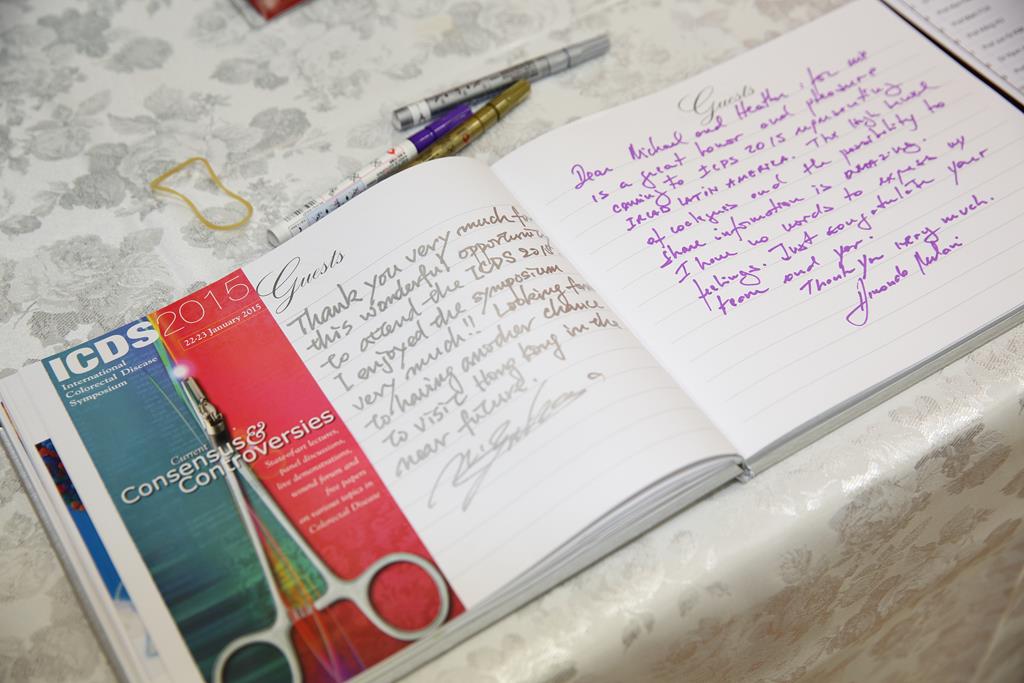 ICDS
International
Colorectal Disease
Symposium
2015
22-23 January 2015
Current
Consensus &
Controversies
State-of-art lectures,
panel discussions,
live demonstrations,
wound forum and
free papers
on various topics in
Colorectal Disease
Guests
Thank you very much for
this wonderful opportunity
to attend the ICDS 2015
I enjoyed the symposium
very much!! Looking forw
to having another chance
to visit Hong Kong in the
near future!
Guests
Dear Michael and Heather, for me
is a great honor and pleasure
coming to ICPS 2015 representing
IRCAD LATIN AMERICA. The high level
of colleagues and the possibility to
share information is amazing.
I have no words to express my
feelings. Just congratulate your
team and you.
Thank you very much.